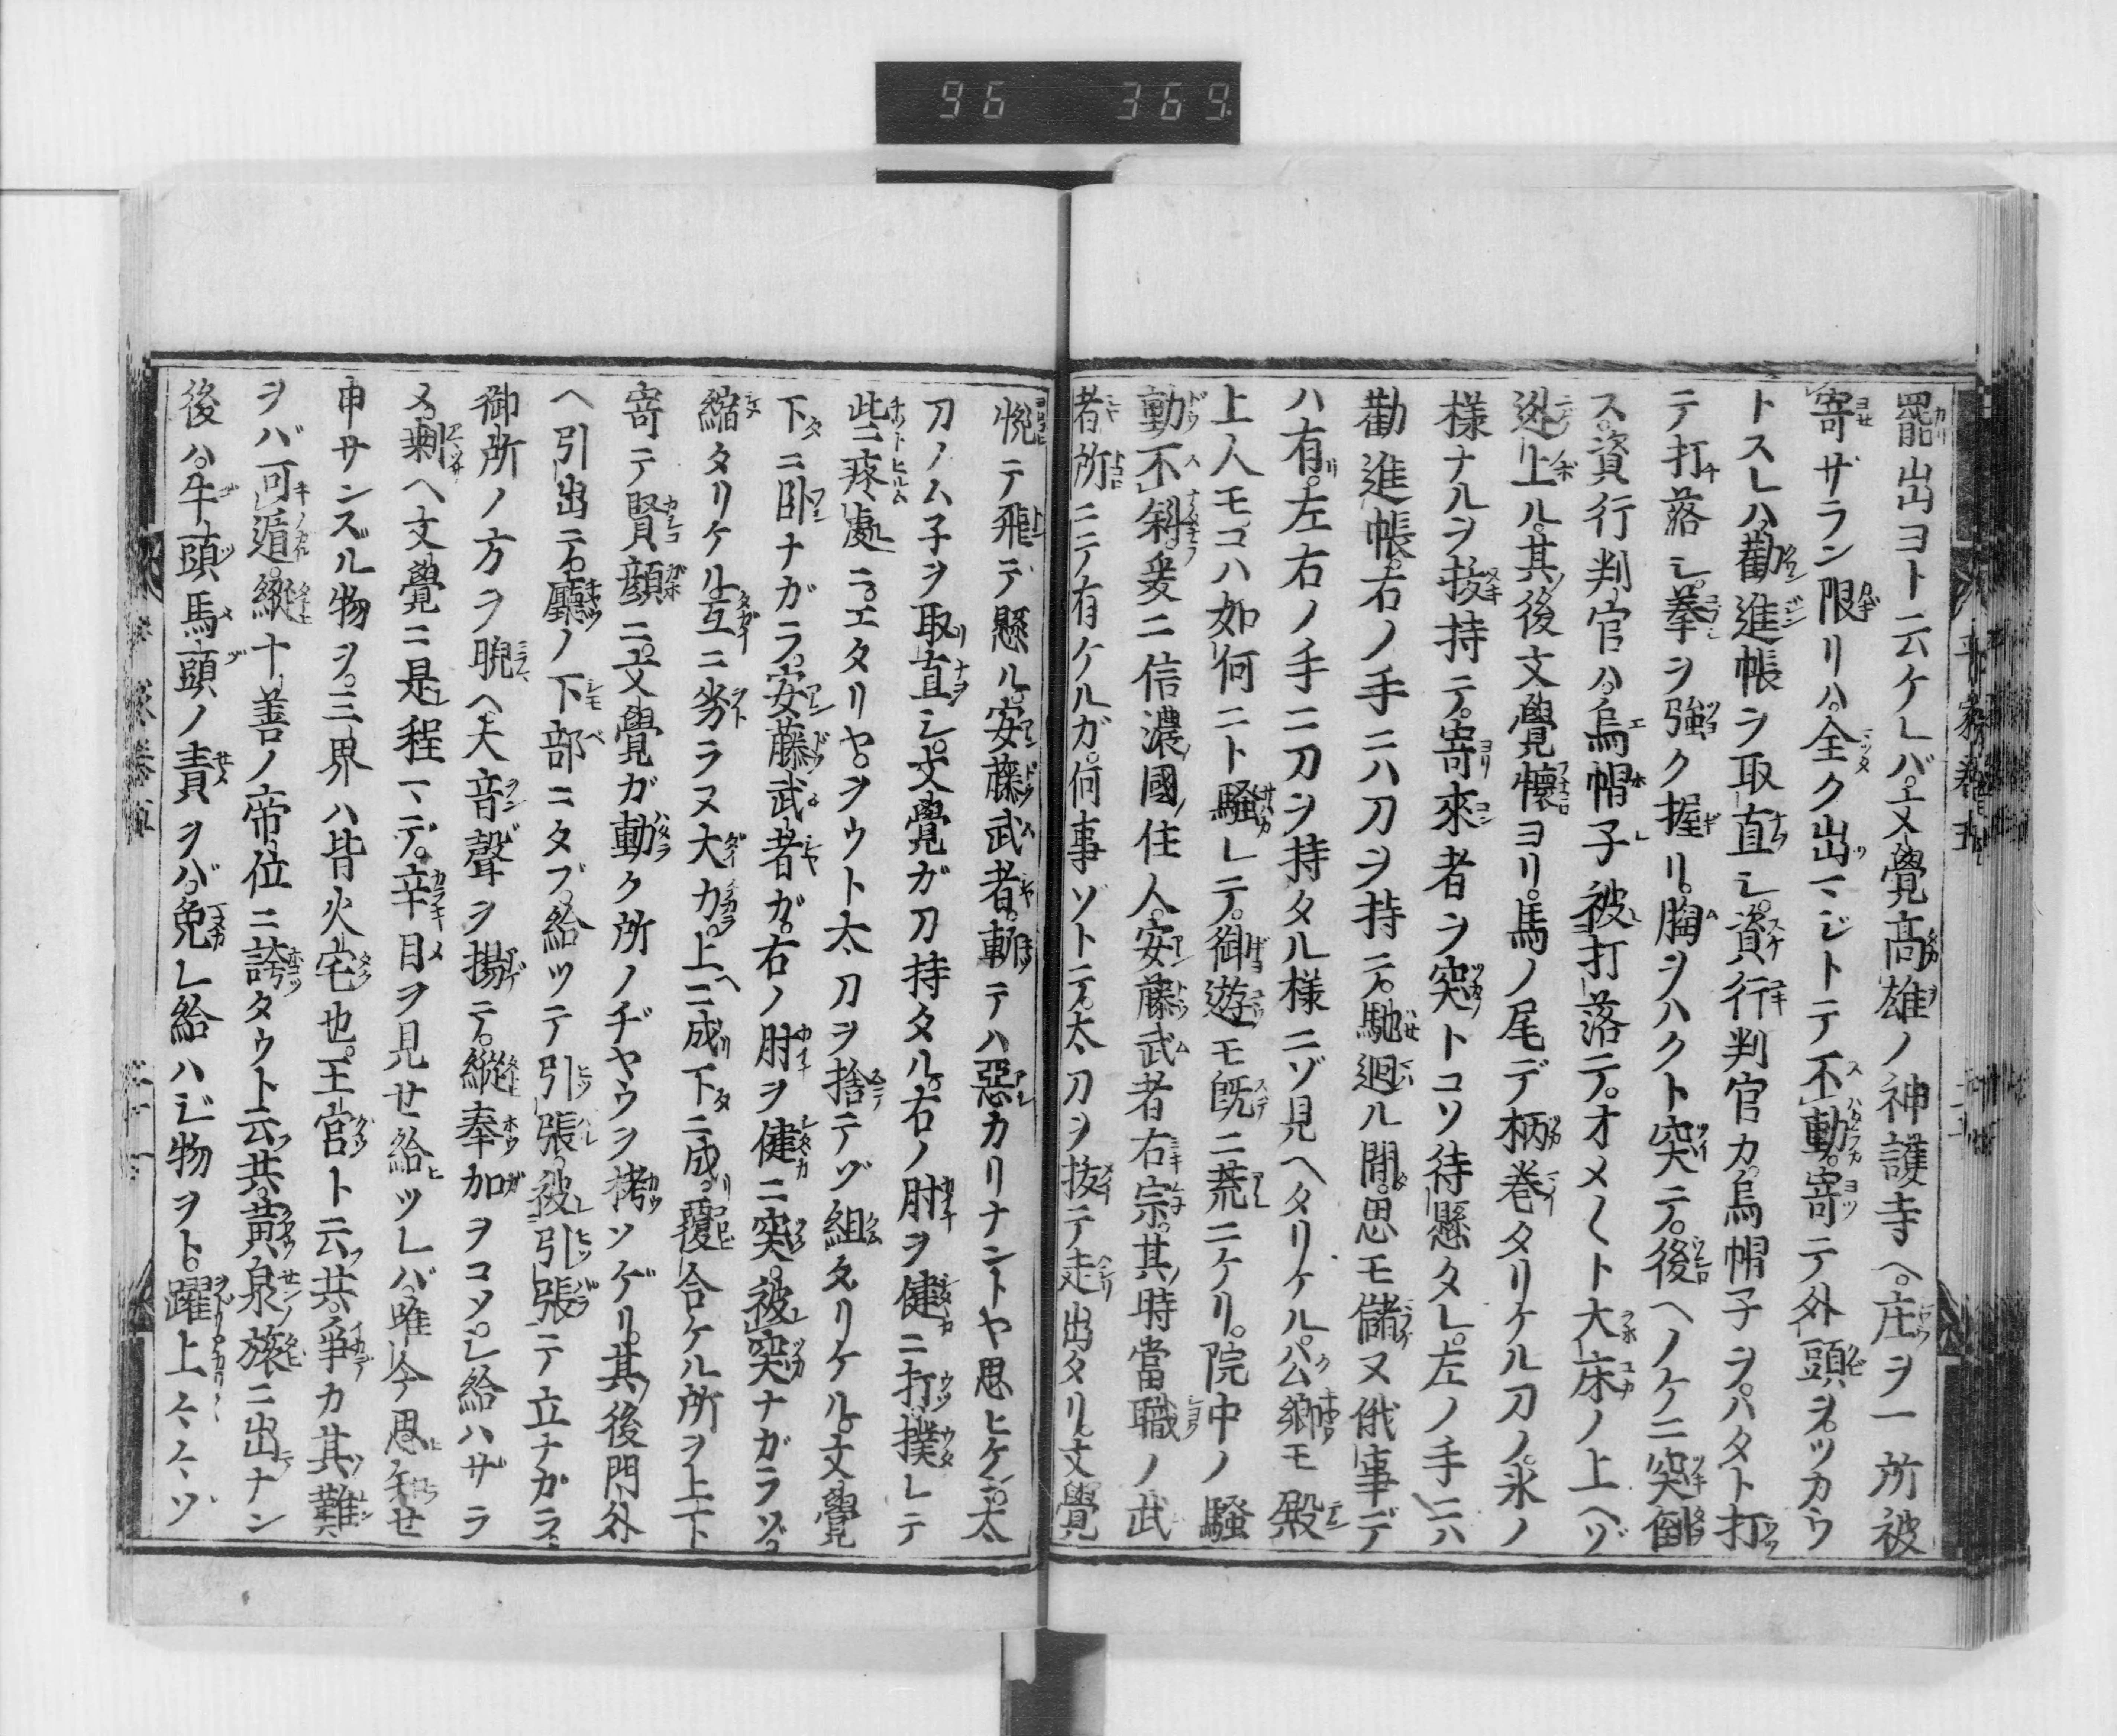 96 369
罷出ヨト云ケレバ。文覺高雄ノ神護寺ヘ。庄ヲ一所被
寄ザラン限リハ。全ク出マジトテ不動。寄テ外頭ヲ。ツカウ
トスレハ。勸進帳ヲ取直シ。資行判官カ。烏帽子ヲ。ハタト打
テ打落シ。拳ヲ強ク握リ。胸ヲハクト突テ。後ヘノケニ突倒
ス。資行判官ハ。烏帽子被打落テ。オメ〱ト大床ノ上ヘゾ
迯上ル。其後文覺懷ヨリ。馬ノ尾デ柄卷タリケル刀ノ。氷ノ
樣ナルヲ拔持テ。寄來者ヲ突トコソ待懸タレ。左ノ手ニハ
勸進帳。右ノ手ニハ刀ヲ持テ。馳廻ル間。思モ儲ヌ俄事デ
ハ有。左右ノ手ニ刀ヲ持タル樣ニゾ見ヘタリケル。公卿モ殿
上人モ。コハ如何ニト騷レテ。御遊モ既ニ荒ニケリ。院中ノ騷
動不斜。爰ニ信濃國ノ住人。安藤武者右宗。其時當職ノ武
者所ニテ有ケルガ。何事ゾトテ。太刀ヲ拔テ走出タリ。文覺
悅テ飛テ懸ル。安藤武者。斬テハ惡カリナントヤ思ヒケン。太
刀ノム子ヲ取直シ。文覺ガ刀持タル。右ノ肘ヲ健ニ打。撲レテ
些ニ疼處ニ。エタリヤ。ヲウト太刀ヲ捨テゾ組タリケル。文覺
下ニ卧ナガラ。安藤武者ガ。右ノ肘ヲ健ニ突。被突ナガラゾ。
縮タリケル。互ニ劣ラヌ大力。上ニ成下ニ成。覆合ケル所ヲ上下
寄テ賢顔ニ。文覺ガ動ク所ノヂヤウヲ栲ソゲリ。其後門外
ヘ引出テ。廳ノ下部ニタブ。給ツテ引張。被引張テ立ナガラ。
御所ノ方ヲ睨ヘ大音聲ヲ揚テ。縱奉加ヲコソ。シ給ハザラ
メ。剰ヘ文覺ニ是程マデ。辛目ヲ見せ給ツレバ。唯今思知せ
申サンズル物ヲ。三界ハ皆火宅也。王宮ト云共。爭カ其難
ヲバ可遁。縱十善ノ帝位ニ誇タウト云共。黃泉ノ旅ニ出ナン
後ハ。牛頭馬頭ノ責ヲバ。免レ給ハジ物ヲト。躍上〻〻ゾ